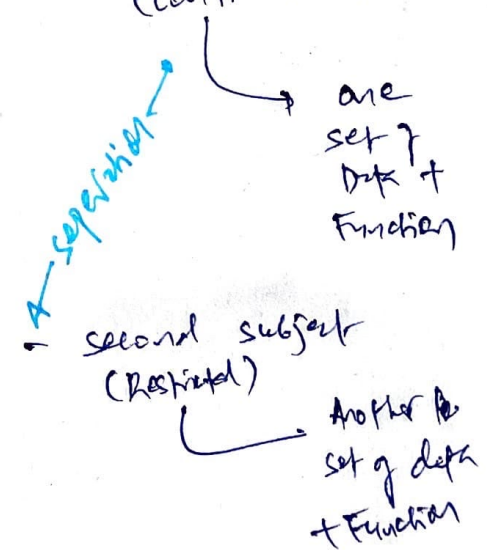 one
set of
Data +
Function
seperation
- second subject
(Restricted)
Another
set of data
+ Function